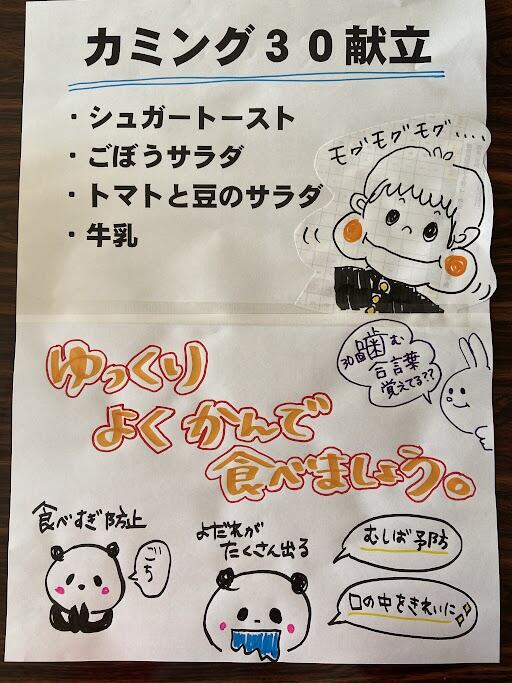 カミング30献立
・シュガートースト
・ごぼうサラダ
・トマトと豆のサラダ
・牛乳
モグモグモグ....
30回噛む
合言葉
覚えてる??
ゆっくり
よくかんで
食べましょう。
食べすぎ防止
ごち
よだれが
たくさん出る
むしば予防
口の中をきれいに